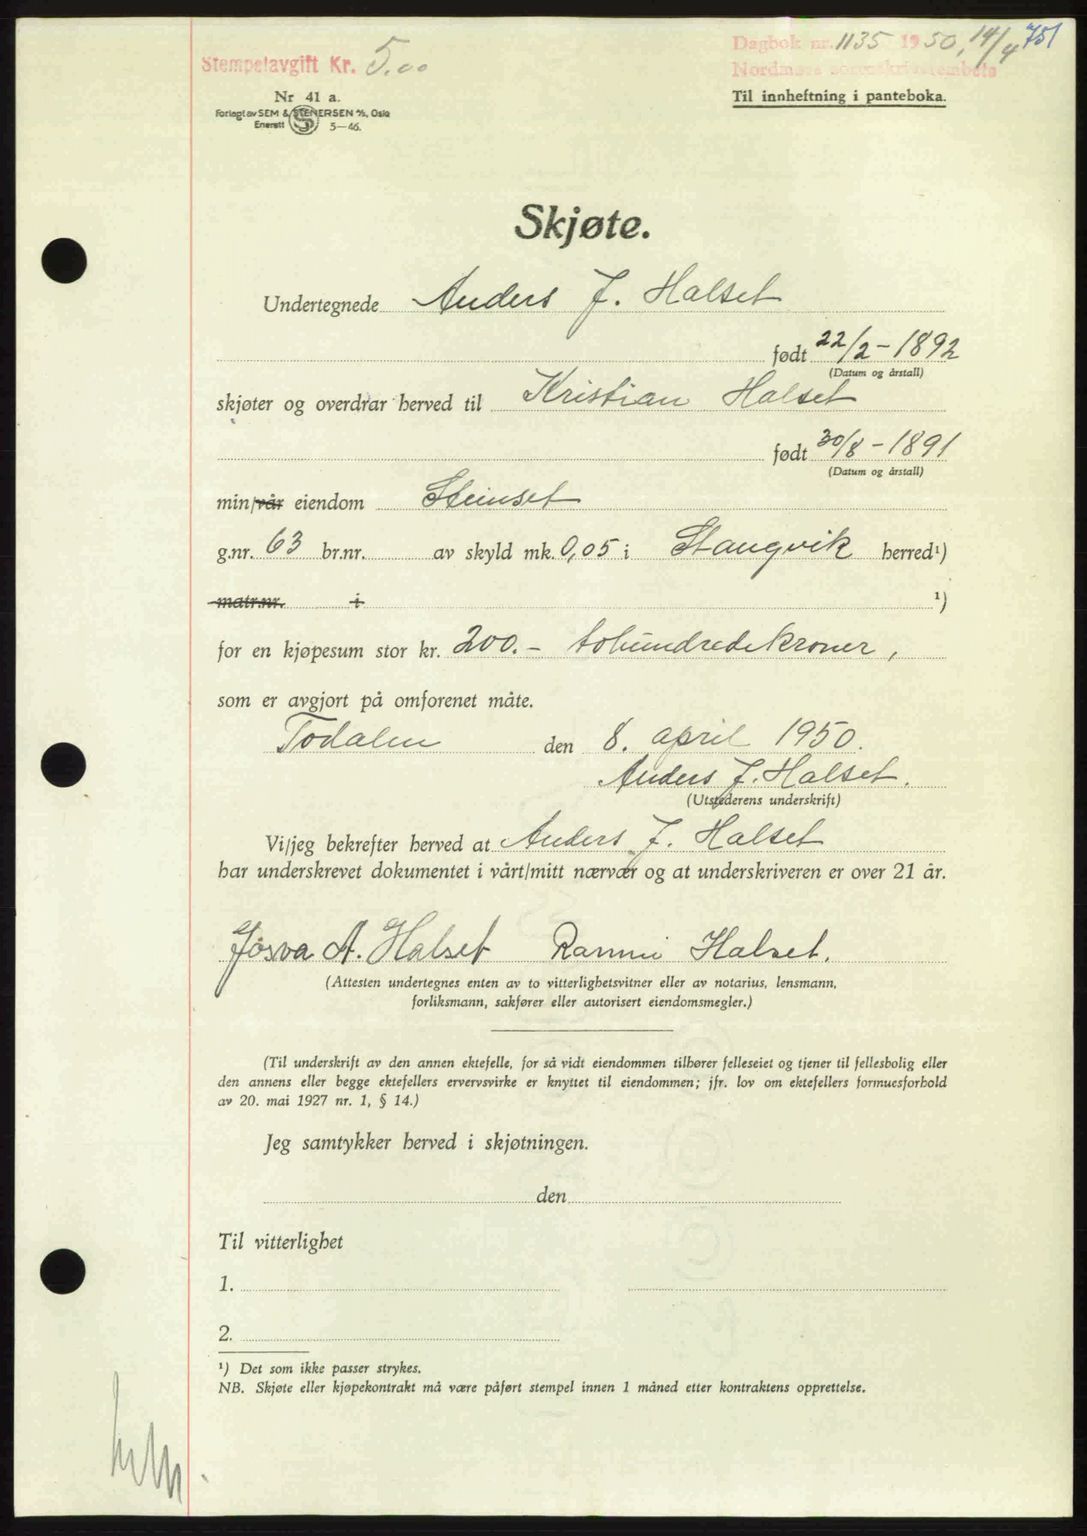 751
Dagbok nr. 1135 1950, 14/4
Nordmøre sorenskriverembete
Stempelavgift Kr. 5.00
Til innheftning i panteboka.
Nr 41 a.
Forlagt av SEM & STENERSEN A/S, Oslo
Enerett S 5—46.
Skjøte.
Undertegnede Anders J. Halset
født 22/2 - 1892
(Datum og årstall)
skjøter og overdrar herved til Kristian Halset
født 30/8 - 1891
(Datum og årstall)
min/vår eiendom Steinset
g.nr. 63 br.nr. av skyld mk. 0,05 i Stangvik herred¹)
matr.nr. i ¹)
for en kjøpesum stor kr. 200.- tohundredekroner,
som er avgjort på omforenet måte.
Todalen den 8. april 1950.
Anders J. Halset.
(Utstederens underskrift)
Vi/jeg bekrefter herved at Anders J. Halset
har underskrevet dokumentet i vårt/mitt nærvær og at underskriveren er over 21 år.
Josva A. Halset Halset.
(Attesten undertegnes enten av to vitterlighetsvitner eller av notarius, lensmann,
forliksmann, sakfører eller autorisert eiendomsmegler.)
(Til underskrift av den annen ektefelle, for så vidt eiendommen tilhører felleseiet og tjener til fellesbolig eller
den annens eller begge ektefellers ervervsvirke er knyttet til eiendommen; jfr. lov om ektefellers formuesforhold
av 20. mai 1927 nr. 1, § 14.)
Jeg samtykker herved i skjøtningen.
den
Til vitterlighet
1.
2.
¹) Det som ikke passer strykes.
NB. Skjøte eller kjøpekontrakt må være påført stempel innen 1 måned etter kontraktens opprettelse.